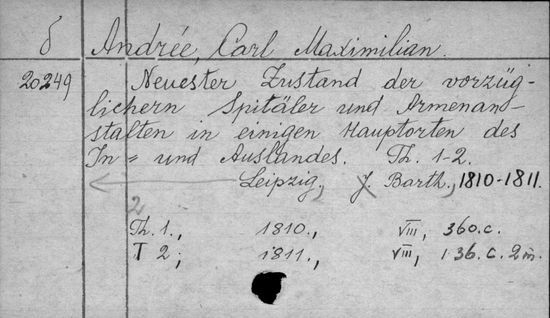 δ Andrée, Carl Maximilian.
20249 Neuester Zustand der vorzüg-
lichern Spitäler und Armenan-
stalten in einigen Hauptorten des
In= und Auslandes. Th. 1-2.
Leipzig, J. Barth., 1810-1811.
2
Th. 1., 1810., VIII, 360.c.
T 2; 1811., VIII, 136.c. 2